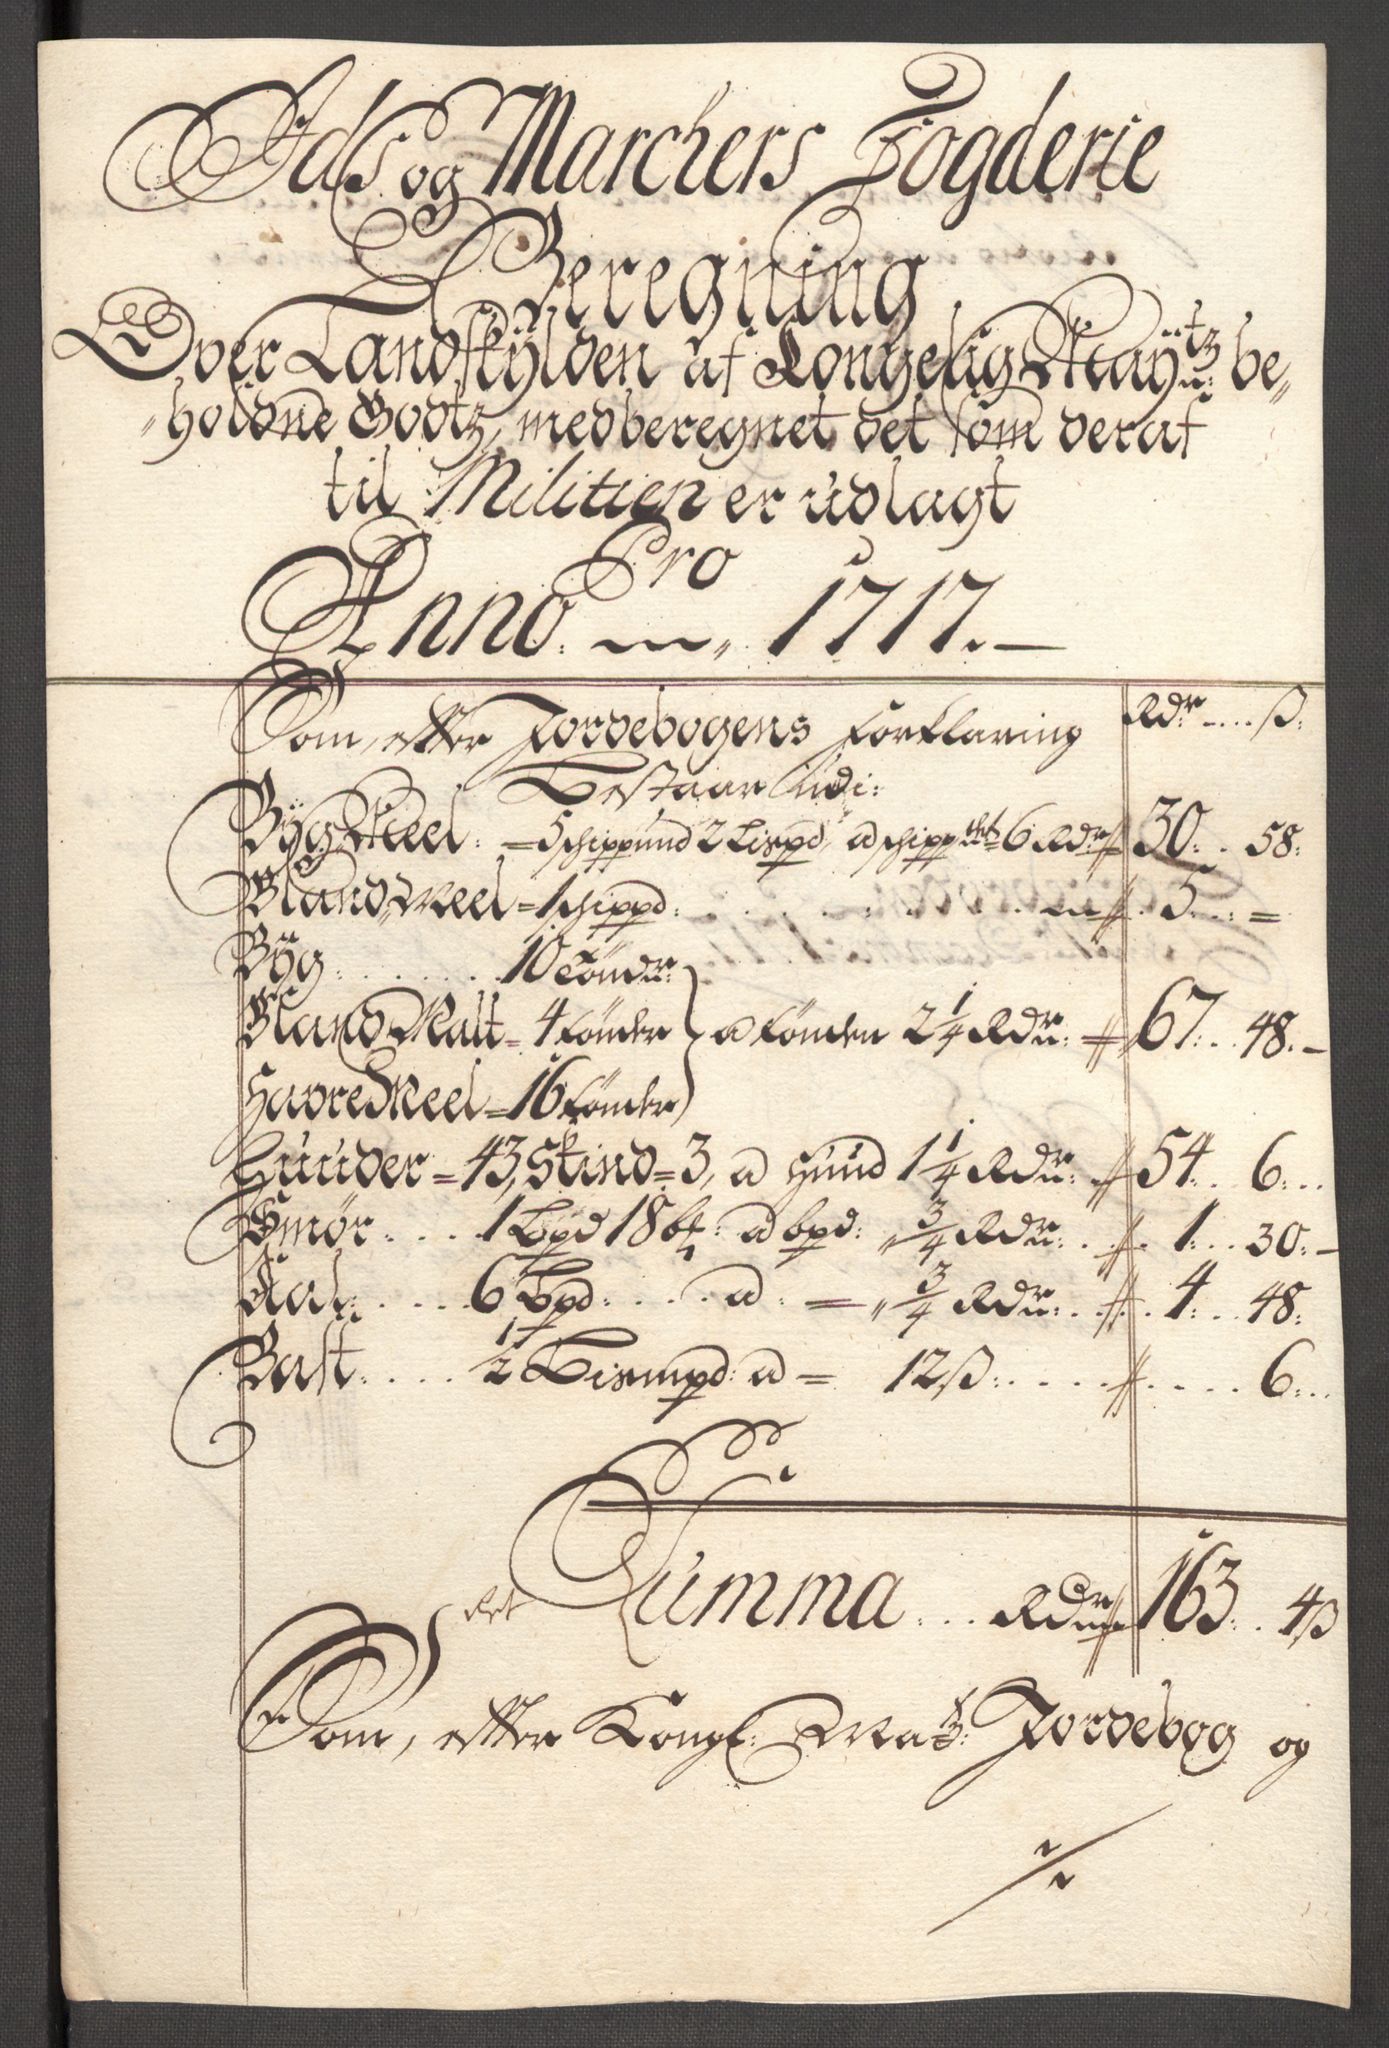 Ids og Marchers Fogderie
Beregning
Over Landskÿlden af Kongelig Maÿtz: be„
„holdne Godtz, medberegnet det som deraf
til Militien er udlagt
Pro
Anno. 1717.
Som, efter Jordebogens forklaring Rdr ß:
Bestaar udi:
Bÿg Meel: = 5 schippund 2 Lispd, a schippdet 6 Rdr 30: 58:
Bland Meel = 1 schippd: 5: =
Bÿg: 10 Tønder
Bland Malt = 4 Tønder a Tønden 2 1/4 Rdr: 67: 48.
Havre Meel = 16 Tønder
Huuder = 43, Skind = 3, a Huud 1 1/4 Rdr: 54: 6:
Smør: 1 Bpd 18 : a bpd: 3/4 Rdr: 1: 30:
Aal: 6 Bpd: a = 3/4 Rdr: 4: 48:
Bast: 1/2 Lismpd: a = 12ß: 6:
Summa Rdr 163: 4ß
Som, efter Kongl: Maÿtz: Jordebog og